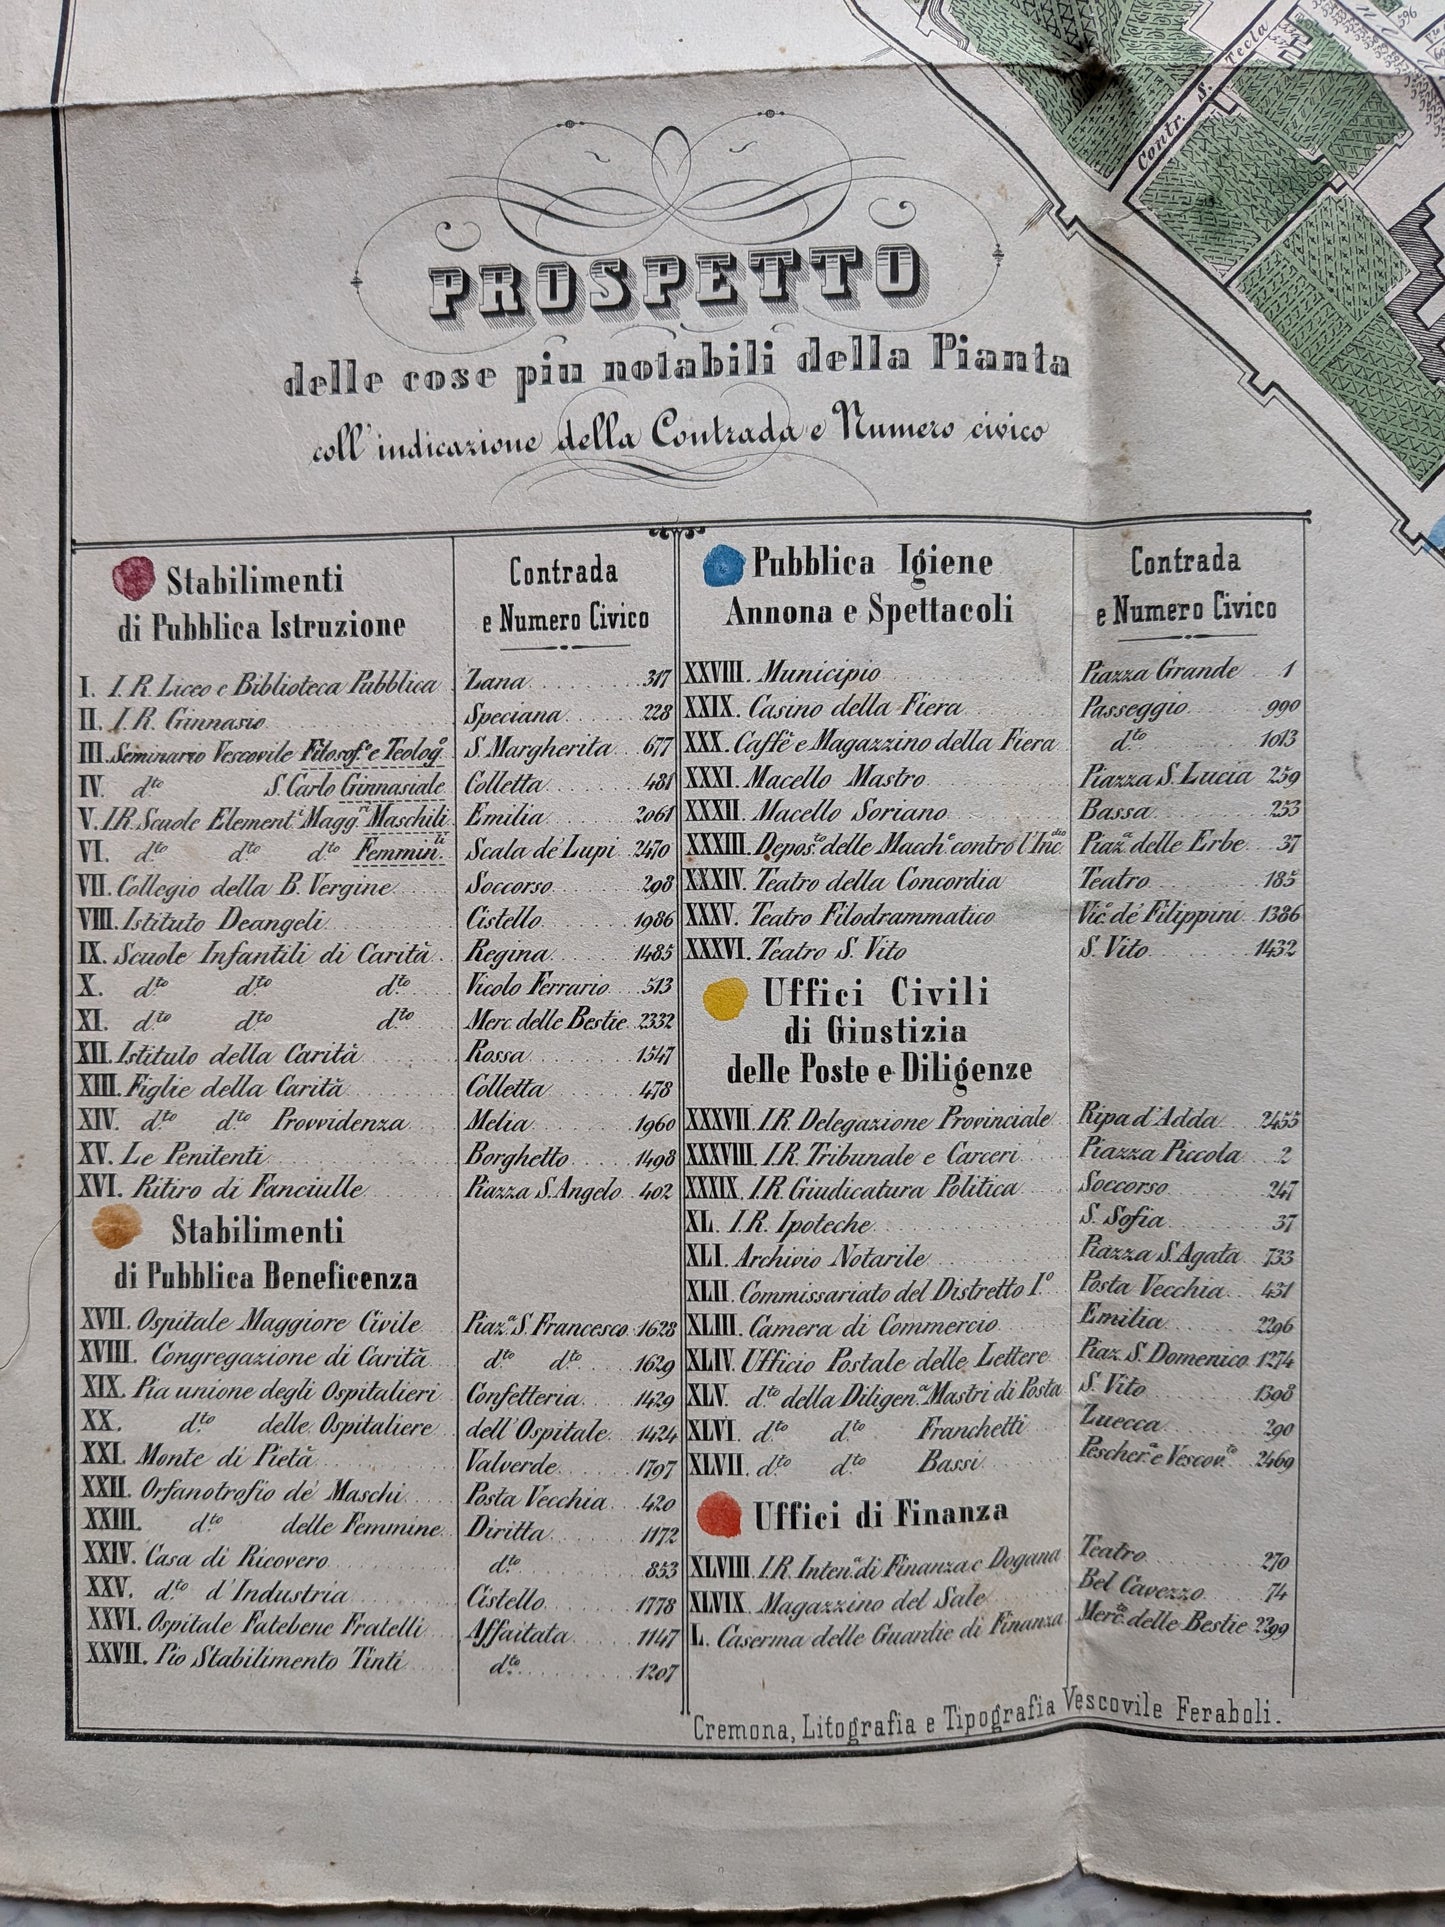 Contr. S. Tecla
596
PROSPETTO
delle cose piu notabili della Pianta
coll'indicazione della Contrada e Numero civico
Stabilimenti
di Pubblica Istruzione
Contrada
e Numero Civico
I. I. R. Liceo e Biblioteca Pubblica Zana 317
II. I. R. Ginnasio Speciana 228
III. Seminario Vescovile Filosof.º e Teolog.º S. Margherita 677
IV. d.to S. Carlo Ginnasiale Colletta 481
V. I.R. Scuole Element.i Magg.ri Maschili Emilia 2061
VI. d.to d.to d.to Femmin.li Scala de' Lupi 2470
VII. Collegio della B. Vergine Soccorso 298
VIII. Istituto Deangeli Cistello 1986
IX. Scuole Infantili di Carità Regina 1485
X. d.to d.to d.to Vicolo Ferrario 513
XI. d.to d.to d.to Merc delle Bestie 2332
XII. Istitulo della Carità Rossa 1547
XIII. Figlie della Carità Colletta 478
XIV. d.to d.to Provvidenza Melia 1960
XV. Le Penitenti Borghetto 1498
XVI. Ritiro di Fanciulle Piazza S. Angelo 402
Stabilimenti
di Pubblica Beneficenza
XVII. Ospitale Maggiore Civile Piaz.a S. Francesco 1628
XVIII. Congregazione di Carità d.to d.to 1629
XIX. Pia unione degli Ospitalieri Confetteria 1429
XX. d.to delle Ospitaliere dell'Ospitale 1424
XXI. Monte di Pietà Valverde 1797
XXII. Orfanotrofio de' Maschi Posta Vecchia 420
XXIII. d.to delle Femmine Diritta 1172
XXIV. Casa di Ricovero d.to 853
XXV. d.to d'Industria Cistello 1778
XXVI. Ospitale Fatebene Fratelli Affaitata 1147
XXVII. Pio Stabilimento Tinti d.to 1207
Pubblica Igiene
Annona e Spettacoli
Contrada
e Numero Civico
XXVIII. Municipio Piazza Grande 1
XXIX. Casino della Fiera Passeggio 990
XXX. Caffè e Magazzino della Fiera d.to 1013
XXXI. Macello Mastro Piazza S. Lucia 259
XXXII. Macello Soriano Bassa 253
XXXIII. Depos.to delle Macch.e contro l'Inc.dio Piaz.a delle Erbe 37
XXXIV. Teatro della Concordia Teatro 185
XXXV. Teatro Filodrammatico Vic.º de' Filippini 1386
XXXVI. Teatro S. Vito S. Vito 1432
Uffici Civili
di Giustizia
delle Poste e Diligenze
XXXVII. I.R. Delegazione Provinciale Ripa d'Adda 2455
XXXVIII. I.R. Tribunale e Carceri Piazza Piccola 2
XXXIX. I.R. Giudicatura Politica Soccorso 247
XL. I.R. Ipoteche S. Sofia 37
XLI. Archivio Notarile Piazza S. Agata 733
XLII. Commissariato del Distretto I.º Posta Vecchia 431
XLIII. Camera di Commercio Emilia 2296
XLIV. Ufficio Postale delle Lettere Piaz. S. Domenico 1274
XLV. d.to della Diligen.a Mastri di Posta S. Vito 1398
XLVI. d.to d.to Franchetti Zuecca 290
XLVII. d.to d.to Bassi Pescher.a e Vescov.to 2469
Uffici di Finanza
XLVIII. I.R. Inten.a di Finanza e Dogana Teatro 270
XLVIX. Magazzino del Sale Bel Cavezzo 74
L. Caserma delle Guardie di Finanza Merc.to delle Bestie 2299
Cremona, Litografia e Tipografia Vescovile Feraboli.